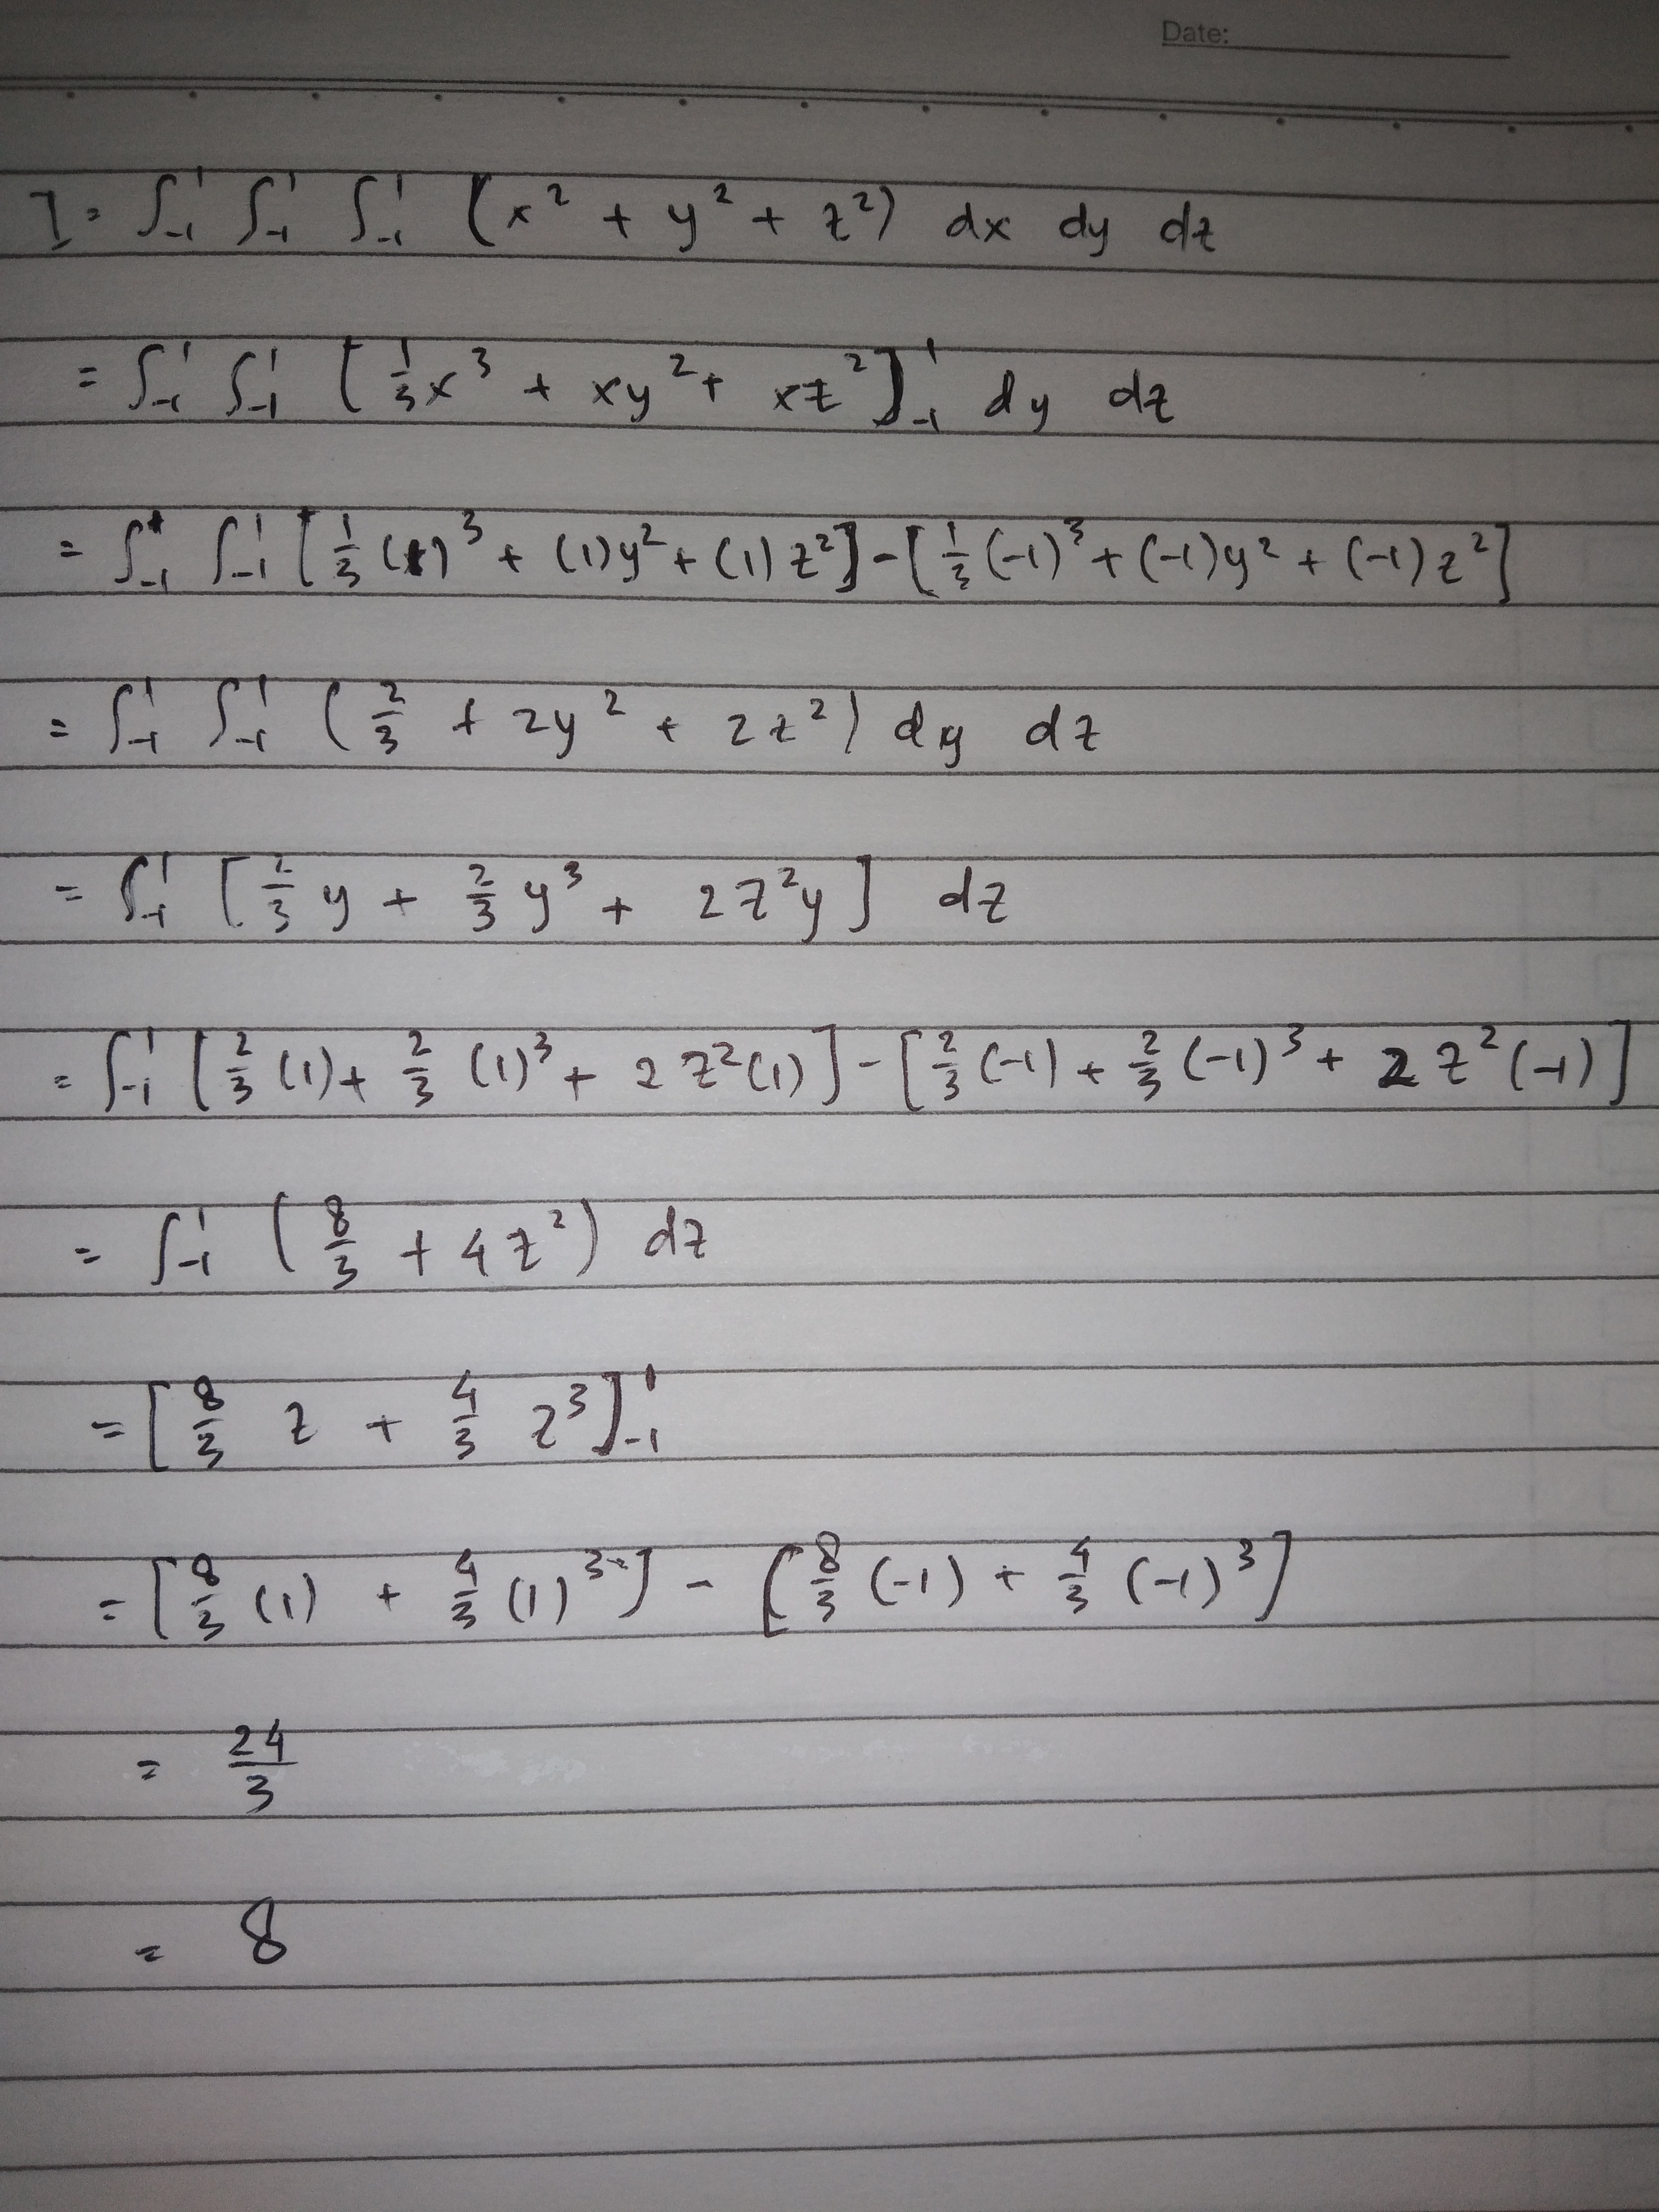 Date:
I = ∫₋₁¹ ∫₋₁¹ ∫₋₁¹ (x² + y² + z²) dx dy dz
= ∫₋₁¹ ∫₋₁¹ [1/3 x³ + xy² + xz²]₋₁¹ dy dz
= ∫₋₁¹ ∫₋₁¹ [1/3 (1)³ + (1)y² + (1)z²] - [1/3 (-1)³ + (-1)y² + (-1)z²]
= ∫₋₁¹ ∫₋₁¹ (2/3 + 2y² + 2z²) dy dz
= ∫₋₁¹ [2/3 y + 2/3 y³ + 2z²y] dz
= ∫₋₁¹ [2/3 (1) + 2/3 (1)³ + 2z²(1)] - [2/3 (-1) + 2/3 (-1)³ + 2z²(-1)]
= ∫₋₁¹ (8/3 + 4z²) dz
= [8/3 z + 4/3 z³]₋₁¹
= [8/3 (1) + 4/3 (1)³] - [8/3 (-1) + 4/3 (-1)³]
= 24/3
= 8